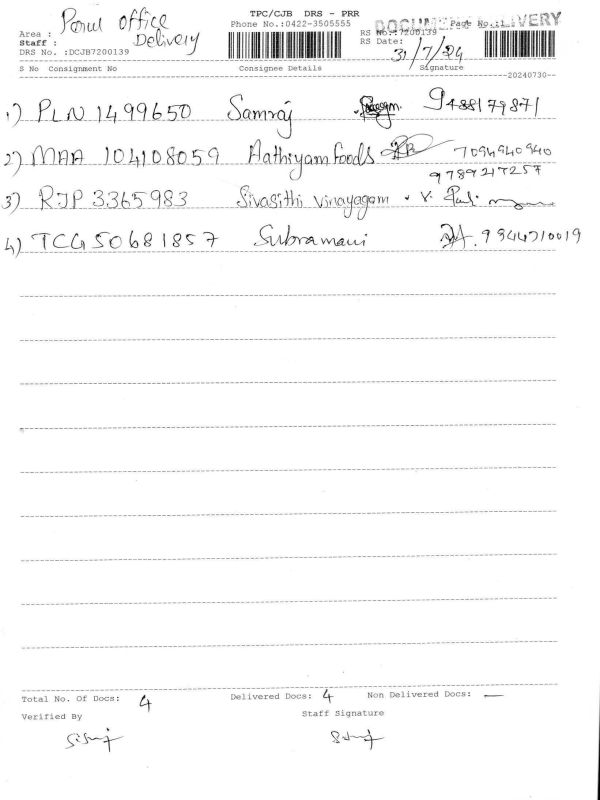 TPC/CJB DRS - PRR
DOCUMENT DELIVERY
Area : Porul office Delivery
Phone No.:0422-3505555
RS No.:7200139
Page No.:1
Staff :
RS Date: 31/7/24
DRS No. :DCJB7200139
S No Consignment No Consignee Details Signature
--20240730--
1) PLN 1499650 Samraj 9488179871
2) MAA 104108059 Aathiyam foods 7094940940
9789217257
3) RJP 3365983 Sivasithi vinayagam
4) TCG 50681857 Subramani 9344710019
Total No. Of Docs: 4 Delivered Docs: 4 Non Delivered Docs: —
Verified By Staff Signature